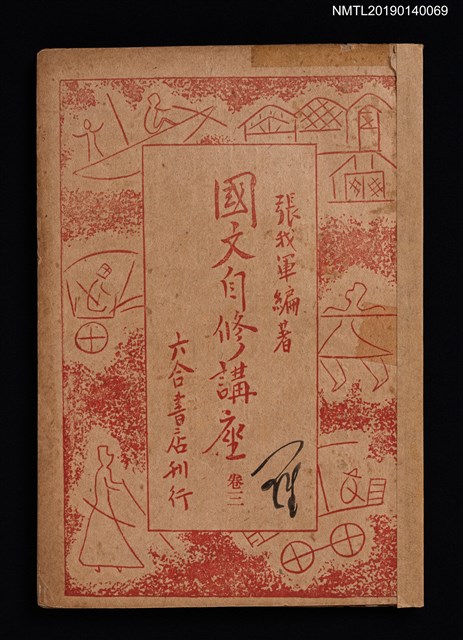 NMTL20190140069
張我軍編著
國文自修講座 卷三
六合書店刊行